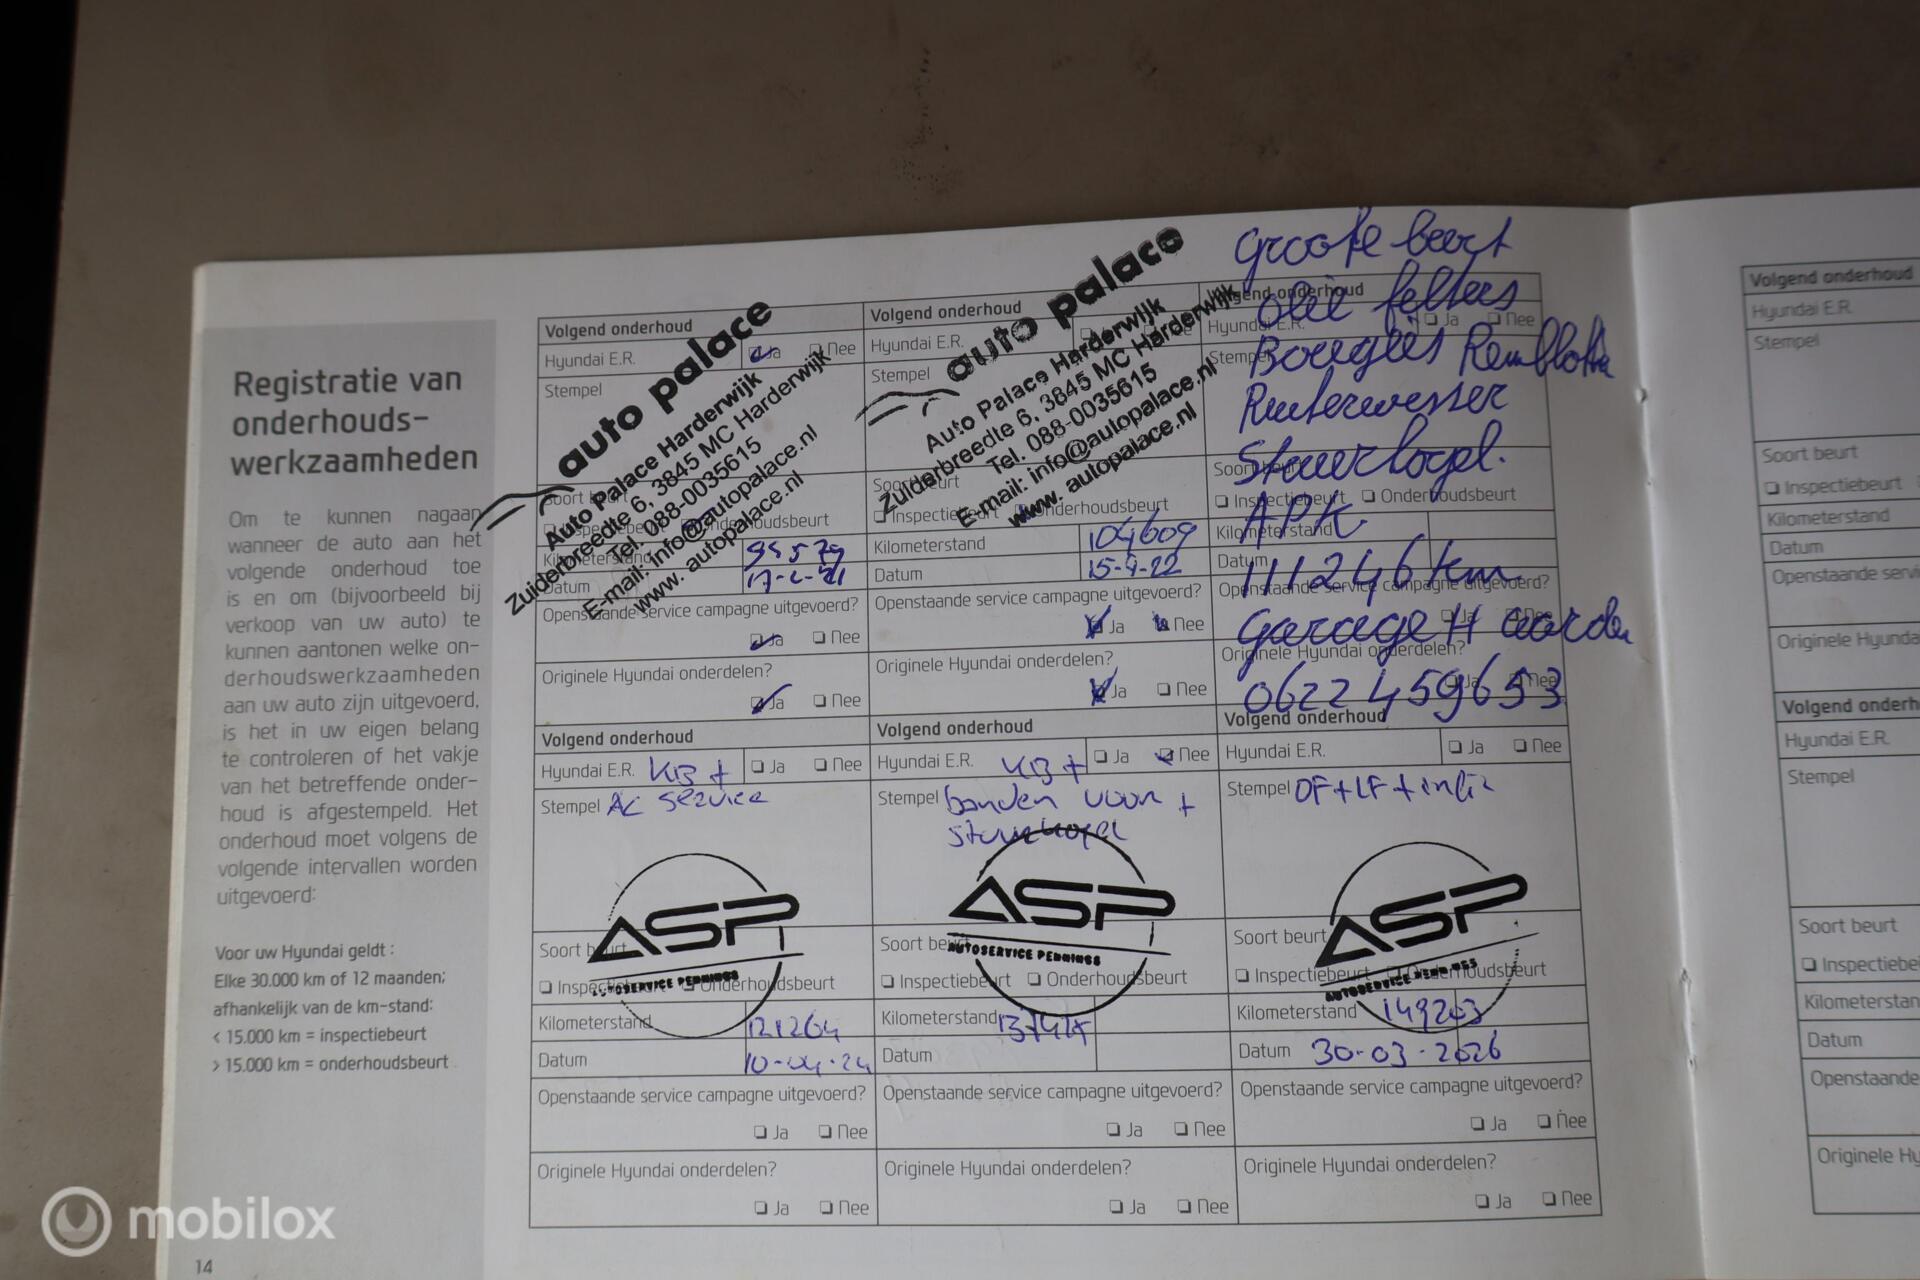 Registratie van
onderhouds-
werkzaamheden
Om te kunnen nagaan
wanneer de auto aan het
volgende onderhoud toe
is en om (bijvoorbeeld bij
verkoop van uw auto) te
kunnen aantonen welke on-
derhoudswerkzaamheden
aan uw auto zijn uitgevoerd,
is het in uw eigen belang
te controleren of het vakje
van het betreffende onder-
houd is afgestempeld. Het
onderhoud moet volgens de
volgende intervallen worden
uitgevoerd:
Voor uw Hyundai geldt :
Elke 30.000 km of 12 maanden;
afhankelijk van de km-stand:
< 15.000 km = inspectiebeurt
> 15.000 km = onderhoudsbeurt
14
Volgend onderhoud
Hyundai E.R. Ja Nee
Stempel
auto palace
Auto Palace Harderwijk
Zuiderbreedte 6, 3845 MC Harderwijk
Tel. 088-0035615
E-mail: info@autopalace.nl
www. autopalace.nl
Soort beurt
Inspectiebeurt Onderhoudsbeurt
Kilometerstand 95579
Datum
Openstaande service campagne uitgevoerd?
Ja Nee
Originele Hyundai onderdelen?
Ja Nee
Volgend onderhoud
Hyundai E.R.
Stempel
auto palace
Auto Palace Harderwijk
Zuiderbreedte 6, 3845 MC Harderwijk
Tel. 088-0035615
E-mail: info@autopalace.nl
www. autopalace.nl
Soort beurt
Inspectiebeurt Onderhoudsbeurt
Kilometerstand 104609
Datum 15-4-22
Openstaande service campagne uitgevoerd?
Ja Nee
Originele Hyundai onderdelen?
Ja Nee
Groote beurt
Volgend onderhoud
olie felters
Hyundai E.R. Ja Nee
Stempel
Bougies Remblokken
Ruiterwesser
Stauerkogel.
Soort beurt
Inspectiebeurt Onderhoudsbeurt
APK
Kilometerstand
Datum
111246 km
Openstaande service campagne uitgevoerd?
Ja Nee
Garage H aarden
Originele Hyundai onderdelen?
Ja Nee
0622459653
Volgend onderhoud
Hyundai E.R. KB + Ja Nee
Stempel AC service
ASP
AUTOSERVICE PENNINGS
Soort beurt
Inspectiebeurt Onderhoudsbeurt
Kilometerstand 121264
Datum 10-04-24
Openstaande service campagne uitgevoerd?
Ja Nee
Originele Hyundai onderdelen?
Ja Nee
Volgend onderhoud
Hyundai E.R. KB + Ja Nee
Stempel banden voor +
stuurkogel
ASP
AUTOSERVICE PENNINGS
Soort beurt
Inspectiebeurt Onderhoudsbeurt
Kilometerstand
Datum
Openstaande service campagne uitgevoerd?
Ja Nee
Originele Hyundai onderdelen?
Ja Nee
Volgend onderhoud
Hyundai E.R. Ja Nee
Stempel OF+LF+
ASP
AUTOSERVICE PENNINGS
Soort beurt
Inspectiebeurt Onderhoudsbeurt
Kilometerstand 149203
Datum 30-03-2026
Openstaande service campagne uitgevoerd?
Ja Nee
Originele Hyundai onderdelen?
Ja Nee
Volgend onderhoud
Hyundai E.R.
Stempel
Soort beurt
Inspectiebeurt
Kilometerstand
Datum
Openstaande servi
Originele Hyunda
Volgend onderh
Hyundai E.R.
Stempel
Soort beurt
Inspectiebe
Kilometerstan
Datum
Openstaande
Originele Hy
mobilox